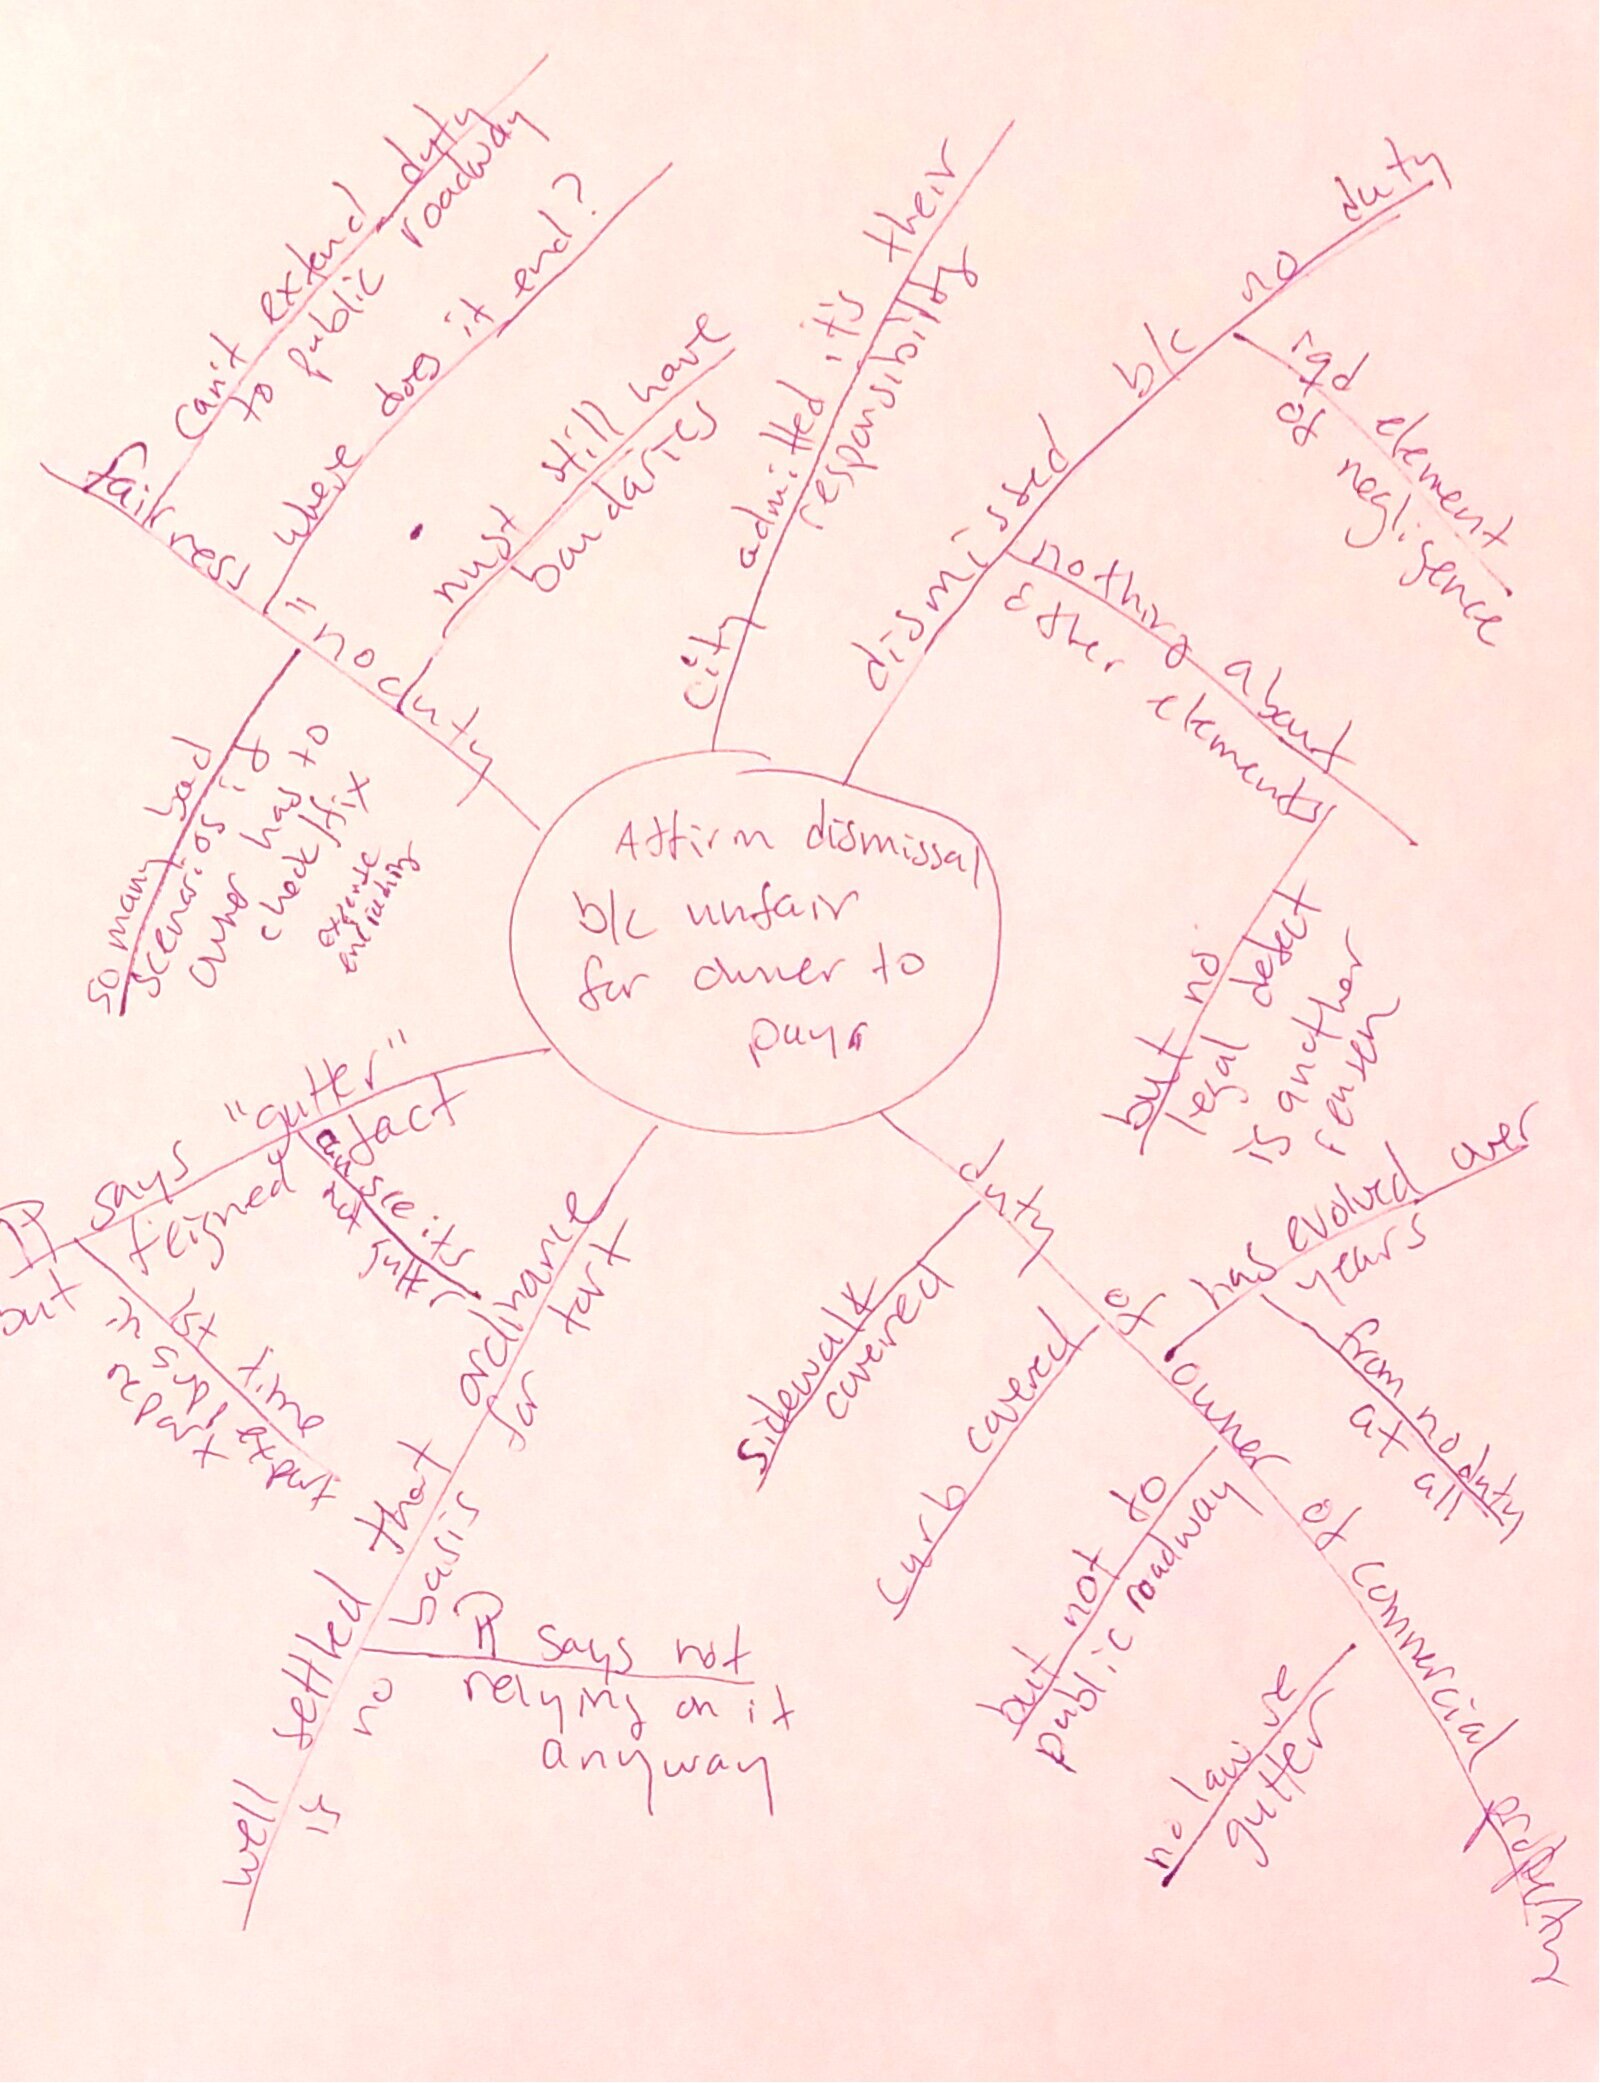 Affirm dismissal
b/c unfair
for owner to
pay.
fairness = no duty
can't extend duty
to public roadway
where does it end?
must still have
boundaries
so many bad
scenarios if
owner has to
check/fix
expense
City admitted it's their
responsibility
dismissed b/c no duty
rqd element
of negligence
nothing about
other elements
but no
legal defect
is another
reason
duty of owner of commercial property
has evolved over
years
from no duty
at all
sidewalk
covered
curb covered
but not to
public roadway
no law re
gutter
well settled that ordinance
is no basis for tort
π says not
relying on it
anyway
π says "gutter"
but feigned fact
can see its
not gutter
1st time